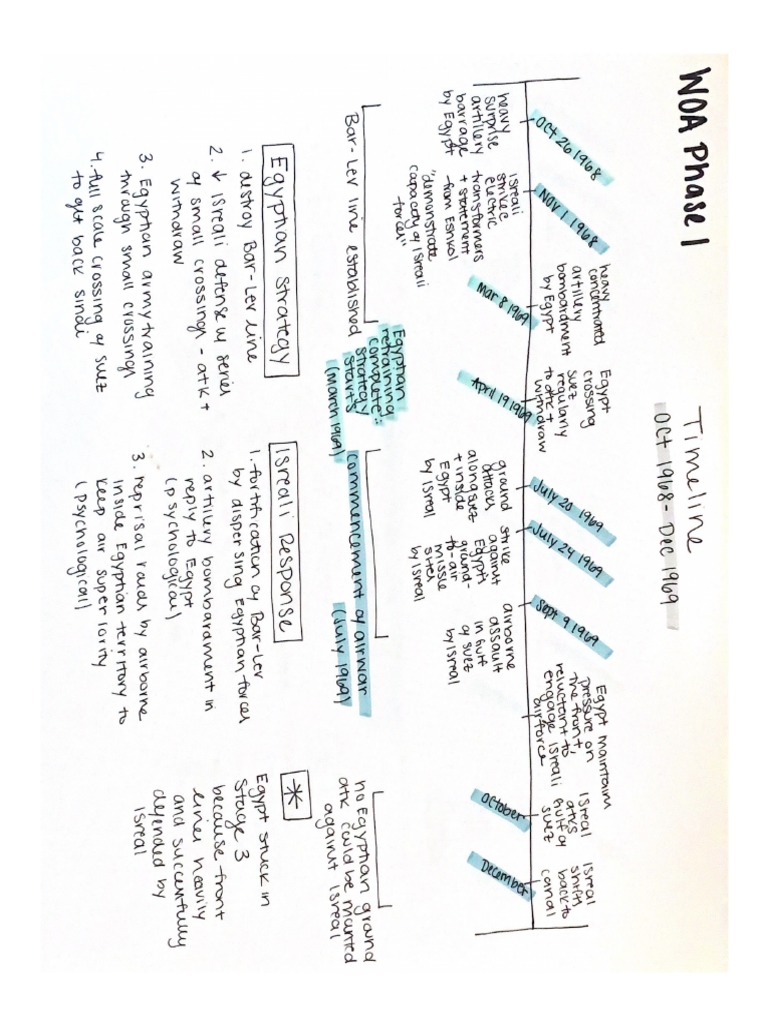 WOA Phase 1
Timeline
Oct 1968 - Dec 1969
Oct 26 1968
heavy
surprise
artillery
barrage
by Egypt
Nov 1 1968
Isreali
strikes
electric
transformers
+ statement
from Eshkol
"demonstrate
capacity of Isreali
forces"
heavy
concentrated
artillery
bombardment
by Egypt
Mar 8 1969
Egypt
crossing
suez
regularly
to atk +
withdraw
April 19 1969
July 20 1969
ground
attacks
along suez
+ inside
Egypt
by Isreal
July 24 1969
strike
against
Egypt's
ground-
to-air
missle
sites
by Isreal
Sept 9 1969
airborne
assault
in Gulf
of suez
by Isreal
Egypt maintains
pressure on
the front,
reluctant to
engage Isreali
airforce
Isreal
atks
Gulf of
suez
October
Isreal
shifts
back to
canal
December
Bar-Lev line established
Egyptian
retraining
complete:
strategy
starts
(March 1969)
commencement of airwar
(July 1969)
no Egyptian ground
atk could be mounted
against Isreal
Egyptian Strategy
1. destroy Bar-Lev line
2. ↓ Isreali defense w series
of small crossings - atk +
withdraw
3. Egyptian army training
through small crossings
4. full scale crossing of suez
to get back sinai
Isreali Response
1. fortification of Bar-Lev
by dispersing Egyptian forces
2. artillery bombardment in
reply to Egypt
(psychological)
3. reprisal raids by airborne
inside Egyptian territory to
keep air superiority
(psychological)
*
Egypt stuck in
stage 3
because front
lines heavily
and successfully
defended by
Isreal